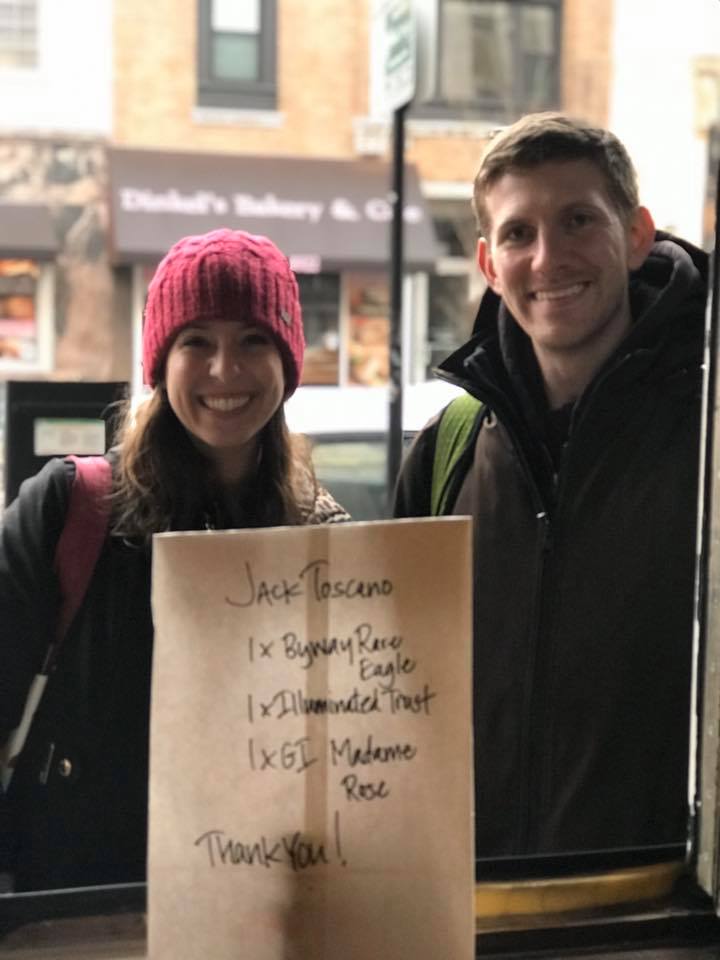 Dinkel's Bakery & Cafe
Jack Toscano
1x Byway Rare
Eagle
1x Illuminated Trust
1x GI Madame
Rose
Thank You!